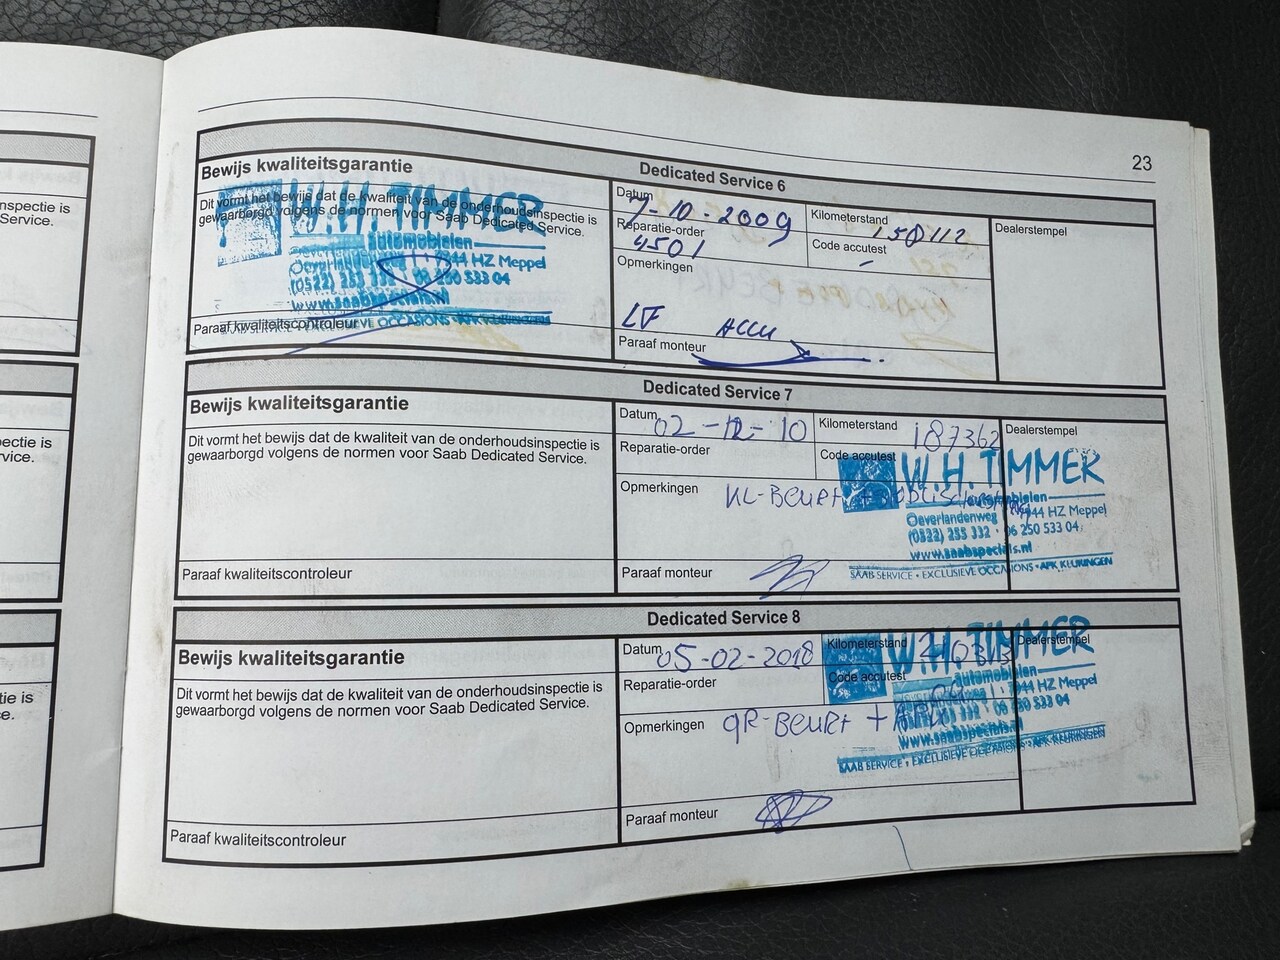 23
Dedicated Service 6
Bewijs kwaliteitsgarantie
Dit vormt het bewijs dat de kwaliteit van de onderhoudsinspectie is
gewaarborgd volgens de normen voor Saab Dedicated Service.
W.H. TIMMER
automobielen
Oeverlandenweg 7944 HZ Meppel
(0522) 255 332 · 06 250 533 04
www.saabspecials.nl
SAAB SERVICE • EXCLUSIEVE OCCASIONS • APK KEURINGEN
Paraaf kwaliteitscontroleur
Datum
7-10-2009
Kilometerstand
150112
Dealerstempel
Reparatie-order
4501
Code accutest
-
Opmerkingen
LF ACCU
Paraaf monteur
Dedicated Service 7
Bewijs kwaliteitsgarantie
Dit vormt het bewijs dat de kwaliteit van de onderhoudsinspectie is
gewaarborgd volgens de normen voor Saab Dedicated Service.
Paraaf kwaliteitscontroleur
Datum
02-12-10
Kilometerstand
187362
Dealerstempel
Reparatie-order
Code accutest
Opmerkingen
KL-BEURT +
W.H. TIMMER
automobielen
Oeverlandenweg 7944 HZ Meppel
(0522) 255 332 · 06 250 533 04
www.saabspecials.nl
SAAB SERVICE • EXCLUSIEVE OCCASIONS • APK KEURINGEN
Paraaf monteur
Dedicated Service 8
Bewijs kwaliteitsgarantie
Dit vormt het bewijs dat de kwaliteit van de onderhoudsinspectie is
gewaarborgd volgens de normen voor Saab Dedicated Service.
Paraaf kwaliteitscontroleur
Datum
05-02-2018
Kilometerstand
Dealerstempel
Reparatie-order
Code accutest
Opmerkingen
GR-BEURT +
W.H. TIMMER
automobielen
7944 HZ Meppel
332 · 06 250 533 04
www.saabspecials.nl
SAAB SERVICE • EXCLUSIEVE OCCASIONS • APK KEURINGEN
Paraaf monteur
nspectie is
Service.
pectie is
rvice.
tie is
e.